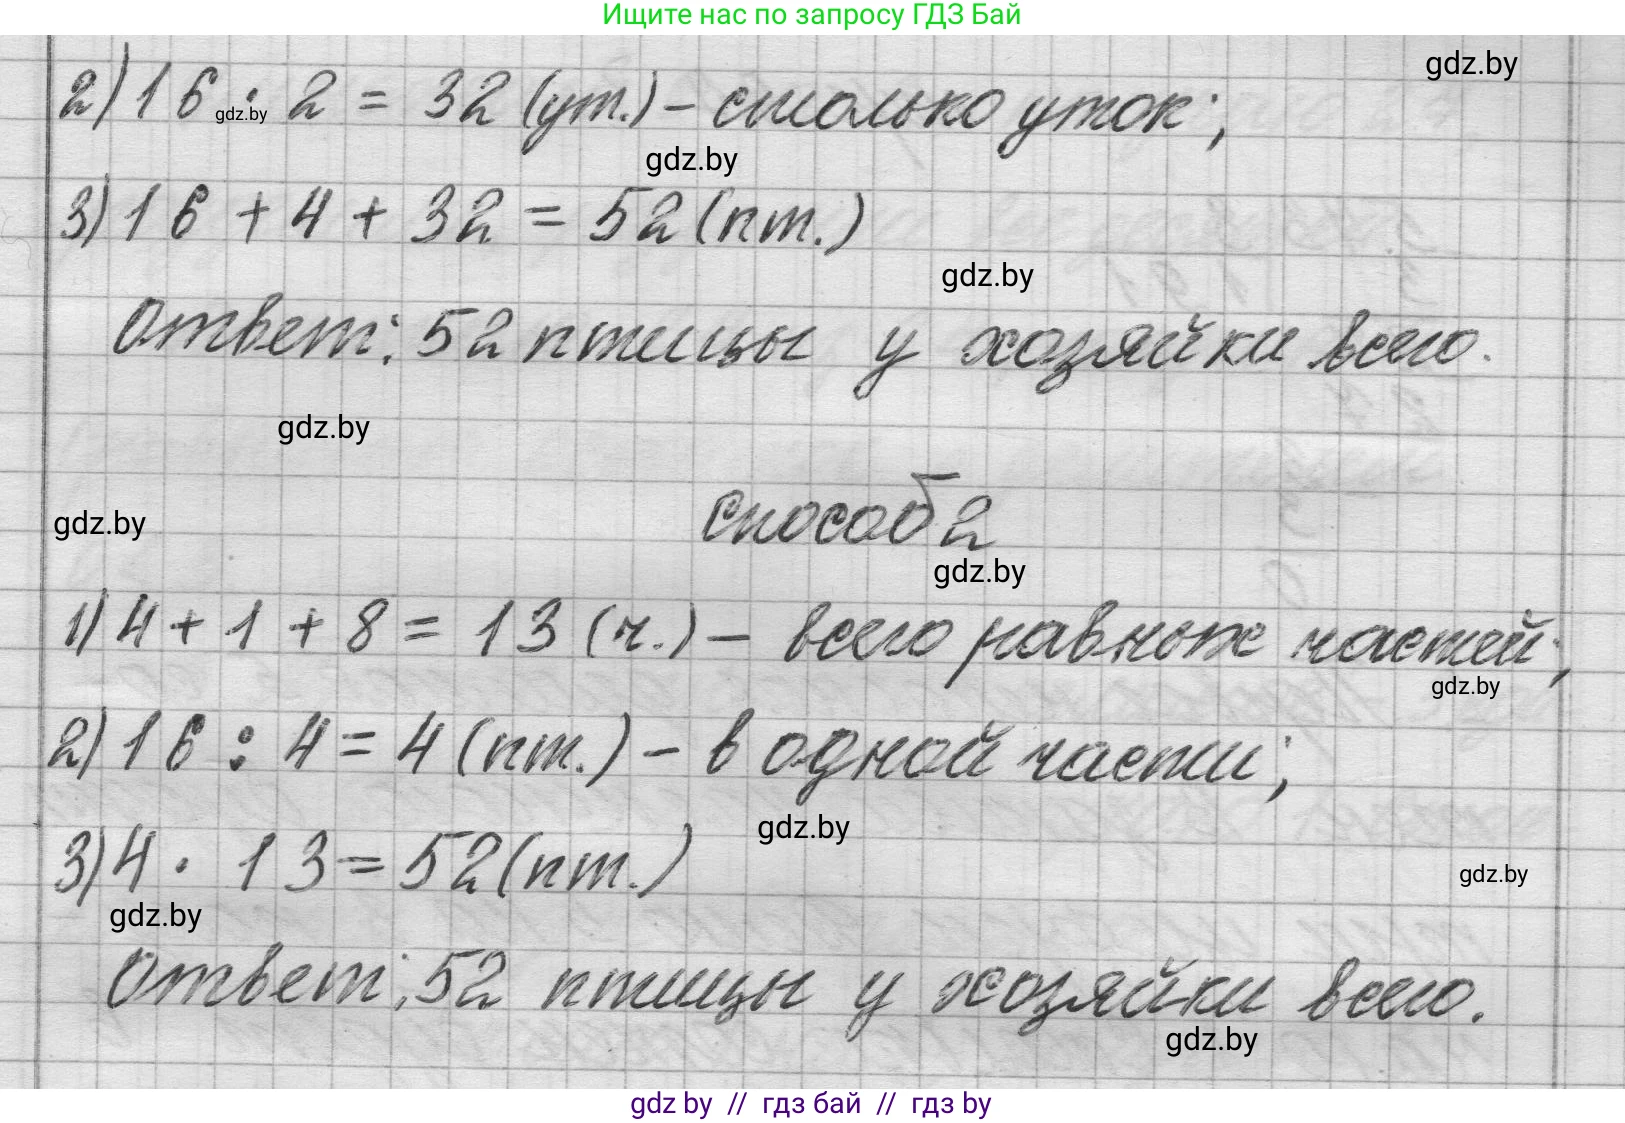 Ищите нас по запросу ГДЗ Бай
gdz.by
2) 16 · 2 = 32 (ут.) – столько уток;
gdz.by
gdz.by
3) 16 + 4 + 32 = 52 (пт.)
gdz.by
Ответ: 52 птицы у хозяйки всего.
gdz.by
способ 2
gdz.by
gdz.by
1) 4 + 1 + 8 = 13 (ч.) – всего равных частей;
gdz.by
2) 16 : 4 = 4 (пт.) – в одной части;
gdz.by
3) 4 · 13 = 52 (пт.)
gdz.by
gdz.by
Ответ: 52 птицы у хозяйки всего.
gdz.by
gdz by // гдз бай // гдз by